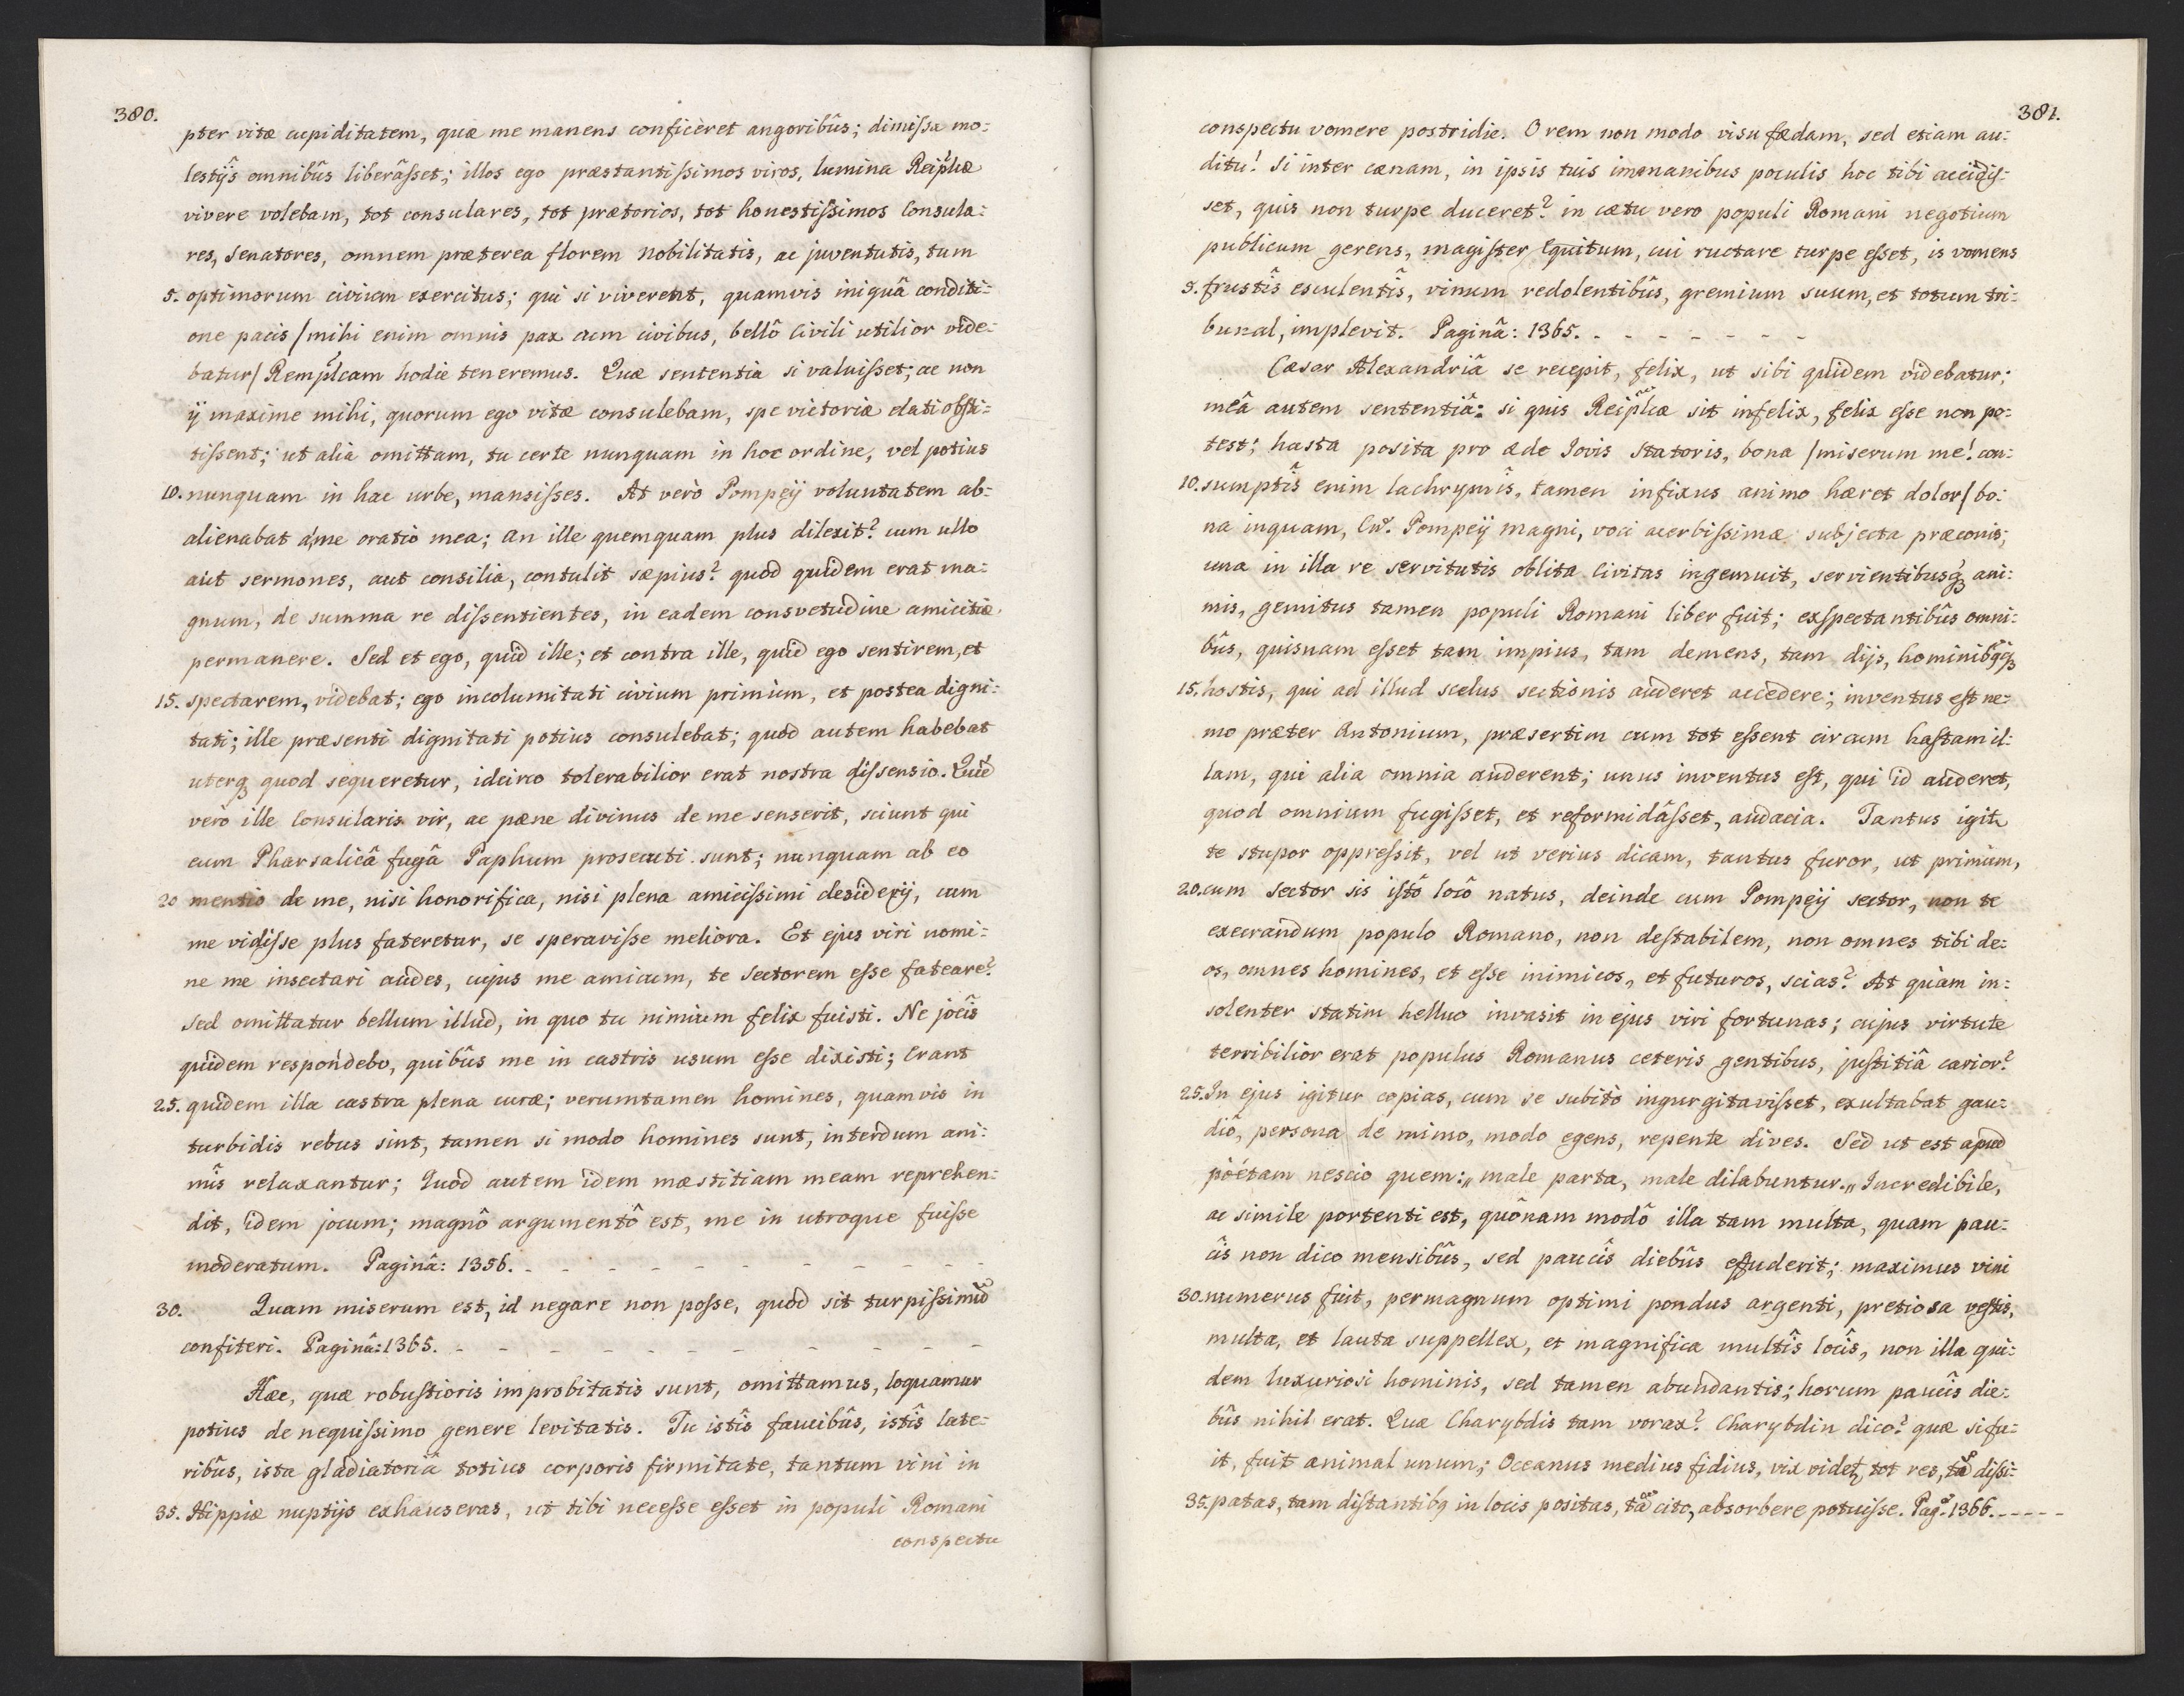 380.
pter vitæ cupiditatem, quæ me manens conficeret angoribûs; dimiſsa mo:
lestijs omnibûs liberâſset; illos ego præstantiſsimos viros, lumina Reiplicæ
vivere volebam, tot consulares, tot prætorios, tot honestiſsimos Consula:
res, Senatores, omnem præterea florem Nobilitatis, ac juventutis, tum
5. optimorum civium exercitus; qui si viverent, quamvis iniquâ conditi:
one pacis /mihi enim omnis pax cum civibus, bellô Civili utilior vide:
batur/ Remplcam hodie teneremus. Quæ sententia si valuiſset; ac non
ij maxime mihi, quorum ego vitæ consulebam, spe victoriæ elati obsti:
tiſsent; ut alia omittam, tu certe nunquam in hoc ordine, vel potius
10. nunquam in hac urbe, mansiſses. At verò Pompeij voluntatem ab:
alienabat à me oratio mea; an ille quemquam plus dilexit? cum ullo
aut sermones, aut consilia, contulit sæpius? quod quidem erat ma:
gnum, de summa re diſsentientes, in eadem consvetudine amicitiæ
permanere. Sed et ego, quid ille; et contra ille, quid ego sentirem, et
15. spectarem, videbat; ego incolumitati civium primùm, et postea digni:
tati; ille præsenti dignitati potius consulebat; quod autem habebat
uterq quod sequeretur, idcirco tolerabilior erat nostra diſsensio. Quid
verò ille Consularis vir, ac pæne divinus de me senserit, sciunt qui
eum Pharsalicâ fugâ Paphum prosecuti sunt; nunquam ab eo
20 mentio de me, nisi honorifica, nisi plena amiciſsimi desiderij, cum
me vidiſse plus fateretur, se speraviſse meliora. Et ejus viri nomi:
ne me insectari audes, cujus me amicum, te Sectorem eſse fateare?
sed omittatur bellum illud, in quo tu nimium felix fuisti. Ne jocîs
quidem respondebo, quibûs me in castris usum eſse dixisti; Erant
25. quidem illa castra plena curæ; verumtamen homines, quamvis in
turbidis rebus sint, tamen si modo homines sunt, interdum ani:
mîs relaxantur; Quod autem idem mæstitiam meam reprehen:
dit, idem jocum; magnô argumentô est, me in utroque fuiſse
moderatum. Paginâ: 1356. - - - - - - - - -
30. Quam miserum est, id negare non poſse, quod sit turpiſsimũ
confiteri. Paginâ: 1365. - - - - - - - - -
Hæc, quæ robustioris improbitatis sunt, omittamus, loquamur
potius de nequiſsimo genere levitatis. Tu istîs faucibûs, istîs late:
ribûs, ista gladiatoriâ totius corporis firmitate, tantum vini in
35. Hippiæ nuptijs exhauseras, ut tibi neceſse eſset in populi Romani
conspectu
381.
conspectu vomere postridie. O rem non modo visu fædam, sed etiam au:
ditu! Si inter cænam, in ipsis tuis immanibus poculis hoc tibi accidiſ:
set, quis non turpe duceret? in cætu vero populi Romani negotium
publicum gerens, magister Equitum, cui ructare turpe eſset, is vomens
5. frustîs esculentîs, vinum redolentibûs, gremium suum, et totum tri:
bunal, implevit. Paginâ: 1365. - - - - - - -
Cæsar Alexandriâ se recepit, felix, ut sibi quidem videbatur;
meâ autem sententiâ: si quis Reiplicæ sit infelix, felix eſse non po:
test; hasta posita pro æde Jovis Statoris, bona /miserum me! con:
10. sumptîs enim lachrymîs, tamen infixus animo hæret dolor/ bo:
na inquam, Cn. Pompeij magni, voci acerbiſsimæ subjecta præconis;
una in illa re servitutis oblita Civitas ingemuit, servientibusq ani:
mis, gemitus tamen populi Romani liber fuit; exspectantibûs omni:
bûs, quisnam eſset tam impius, tam demens, tam dijs, hominibqq
15. hostis, qui ad illud scelus sectionis auderet accedere; inventus est ne:
mo præter Antonium, præsertim cum tot eſsent circum hastam il:
lam, qui alia omnia auderent; unus inventus est, qui id auderet,
quod omnium fugiſset, et reformidâſset, audacia. Tantus igitr
te stupor oppreſsit, vel ut verius dicam, tantus furor, ut primùm,
20. cum Sector sis istô locô natus, deinde cum Pompeij sector, non te
execrandum populo Romano, non destabilem, non omnes tibi de:
os, omnes homines, et eſse inimicos, et futuros, scias? At quàm in:
solenter statim helluo invasit in ejus viri fortunas; cujus virtute
terribilior erat populus Romanus ceteris gentibus, justitiâ carior?
25. In ejus igitur copias, cum se subitò ingurgitaviſset, exultabat gau:
diô, persona de mimo, modo egens, repente dives. Sed ut est apud
poëtam nescio quem: „male parta, male dilabuntur.„ Incredibile,
ac simile portenti est, quônam modô illa tam multa, quam pau:
cîs non dico mensibûs, sed paucîs diebûs effuderit; maximus vini
30. numerus fuit, permagnum optimi pondus argenti, pretiosa vestis,
multa, et lauta suppellex, et magnifica multîs locîs, non illa qui:
dem luxuriosi hominis, sed tamen abundantis; horum paucîs die:
bûs nihil erat. Quæ Charybdis tam vorax? Charybdin dico? quæ si fu:
it, fuit animal unum; Oceanus medius fidius, vix videtr tot res, tã diſsi:
35. patas, tam distantibq in locis positas, tã cito, absorbere potuiſse. Pag. 1366. - - - - -